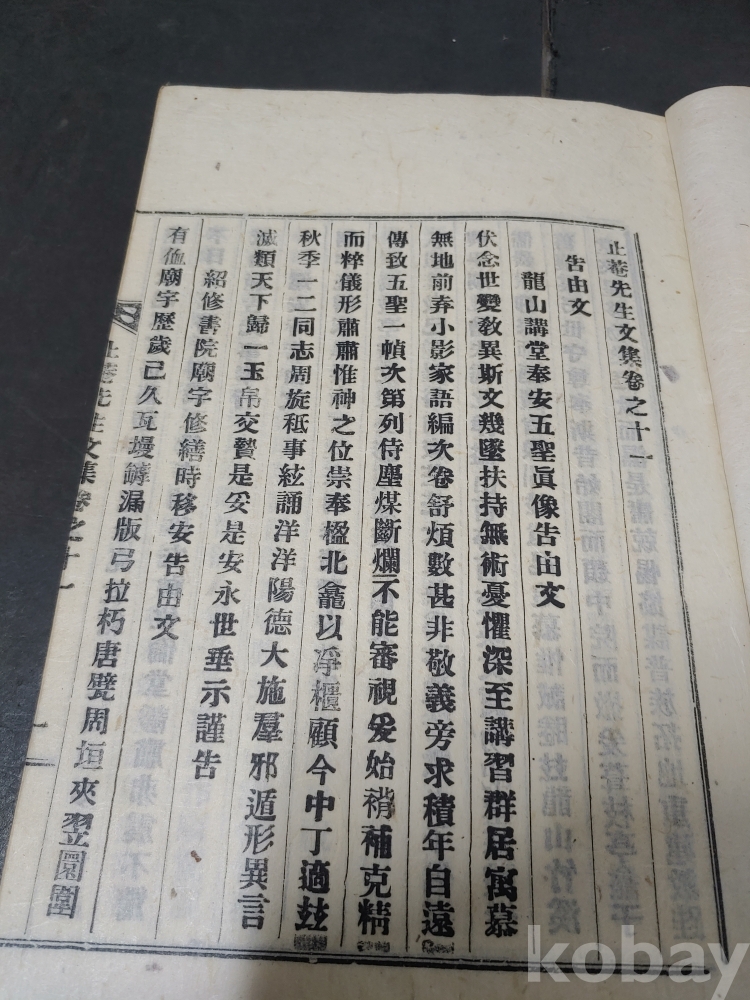 止菴先生文集卷之十一
告由文
龍山講堂奉安五聖眞像告由文
伏念世變敎異斯文幾墜扶持無術憂懼深至講習群居寓慕
無地前弆小影家語編次卷舒煩數甚非敬義旁求積年自遠
傳致五聖一幀次第列侍塵煤斷爛不能審視爰始褙補克精
而粹儀形肅肅惟神之位崇奉楹北龕以淨櫃顧今中丁適玆
秋季一二同志周旋秪事絃誦洋洋陽德大施羣邪遁形異言
滅類天下歸一玉帛交贄是妥是安永世垂示謹告
紹修書院廟宇修繕時移安告由文
有侐廟宇歷歲已久瓦墁罅漏版弓拉朽唐甓周垣夾翌園圍
止菴先生文集卷之十一
一
kobay